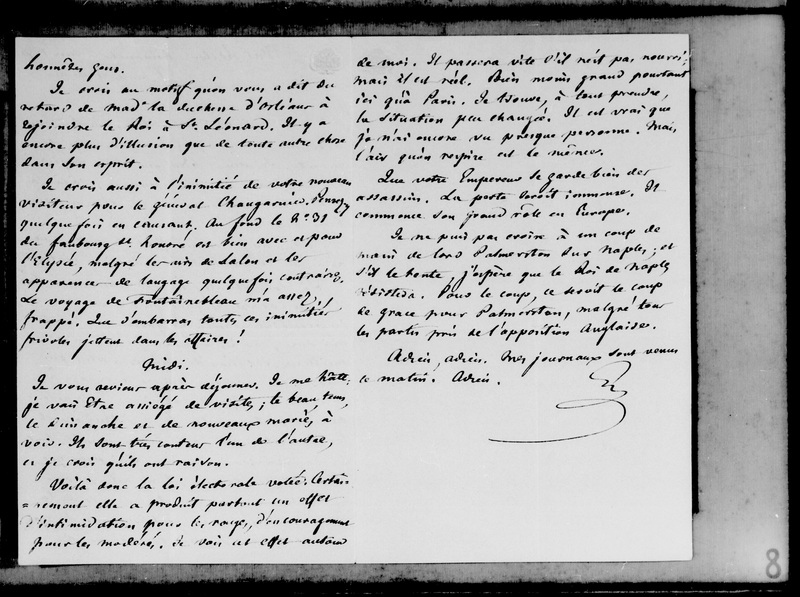 honnêtes gens.
Je crois au motif qu'on vous a dit du
retard de mad^e la duchesse d'Orléans à
rejoindre le Roi à St Léonard. Il y a
encore plus d'illusion que de toute autre chose
dans son esprit.
Je crois aussi à l'inimitié de votre nouveau
visiteur pour le général Changarnier.
quelquefois en causant. Au fond le n° 31
du faubourg St honoré est bien avec et pour
l'Elysée, malgré les airs de Salon et les
apparences de langage quelquefois contraires.
Le voyage de Fontainebleau m'a assez
frappé. Que d'embarras toutes ces inimitiés
frivoles jettent dans les affaires !
Midi.
Je vous reviens après déjeuner. Je me hâte ;
je vais être assiégé de visites ; le beau tems,
le Dimanche et de nouveaux mariés à
voir. Ils sont très contens l'un de l'autre,
et je crois qu'ils ont raison.
Voilà donc la loi électorale votée. Certai-
=nement elle a produit partout un effet
d'intimidation pour les rouges, d'encouragement
pour les modérés. Je vois cet effet autour
de moi. Il passera vite s'il n'est pas nourri ;
mais il est réel. Bien moins grand pourtant
ici qu'à Paris. Je trouve, à tout prendre,
la situation peu changée. Il est vrai que
je n'ai encore vu presque personne. Mais
l'air qu'on respire est le même.
Que votre Empereur se garde bien des
assassins. La perte seroit immense. Il
commence son grand rôle en Europe.
Je ne puis pas croire à un coup de
main de lord Palmerston sur Naples ; et
s'il le tente, j'espère que le Roi de Naples
résistera. Pour le coup, ce seroit le coup
de grace pour Palmerston, malgré tous
les partis pris de l'opposition Anglaise.
Adieu, adieu. Mes journaux sont venus
ce matin. Adieu.
8